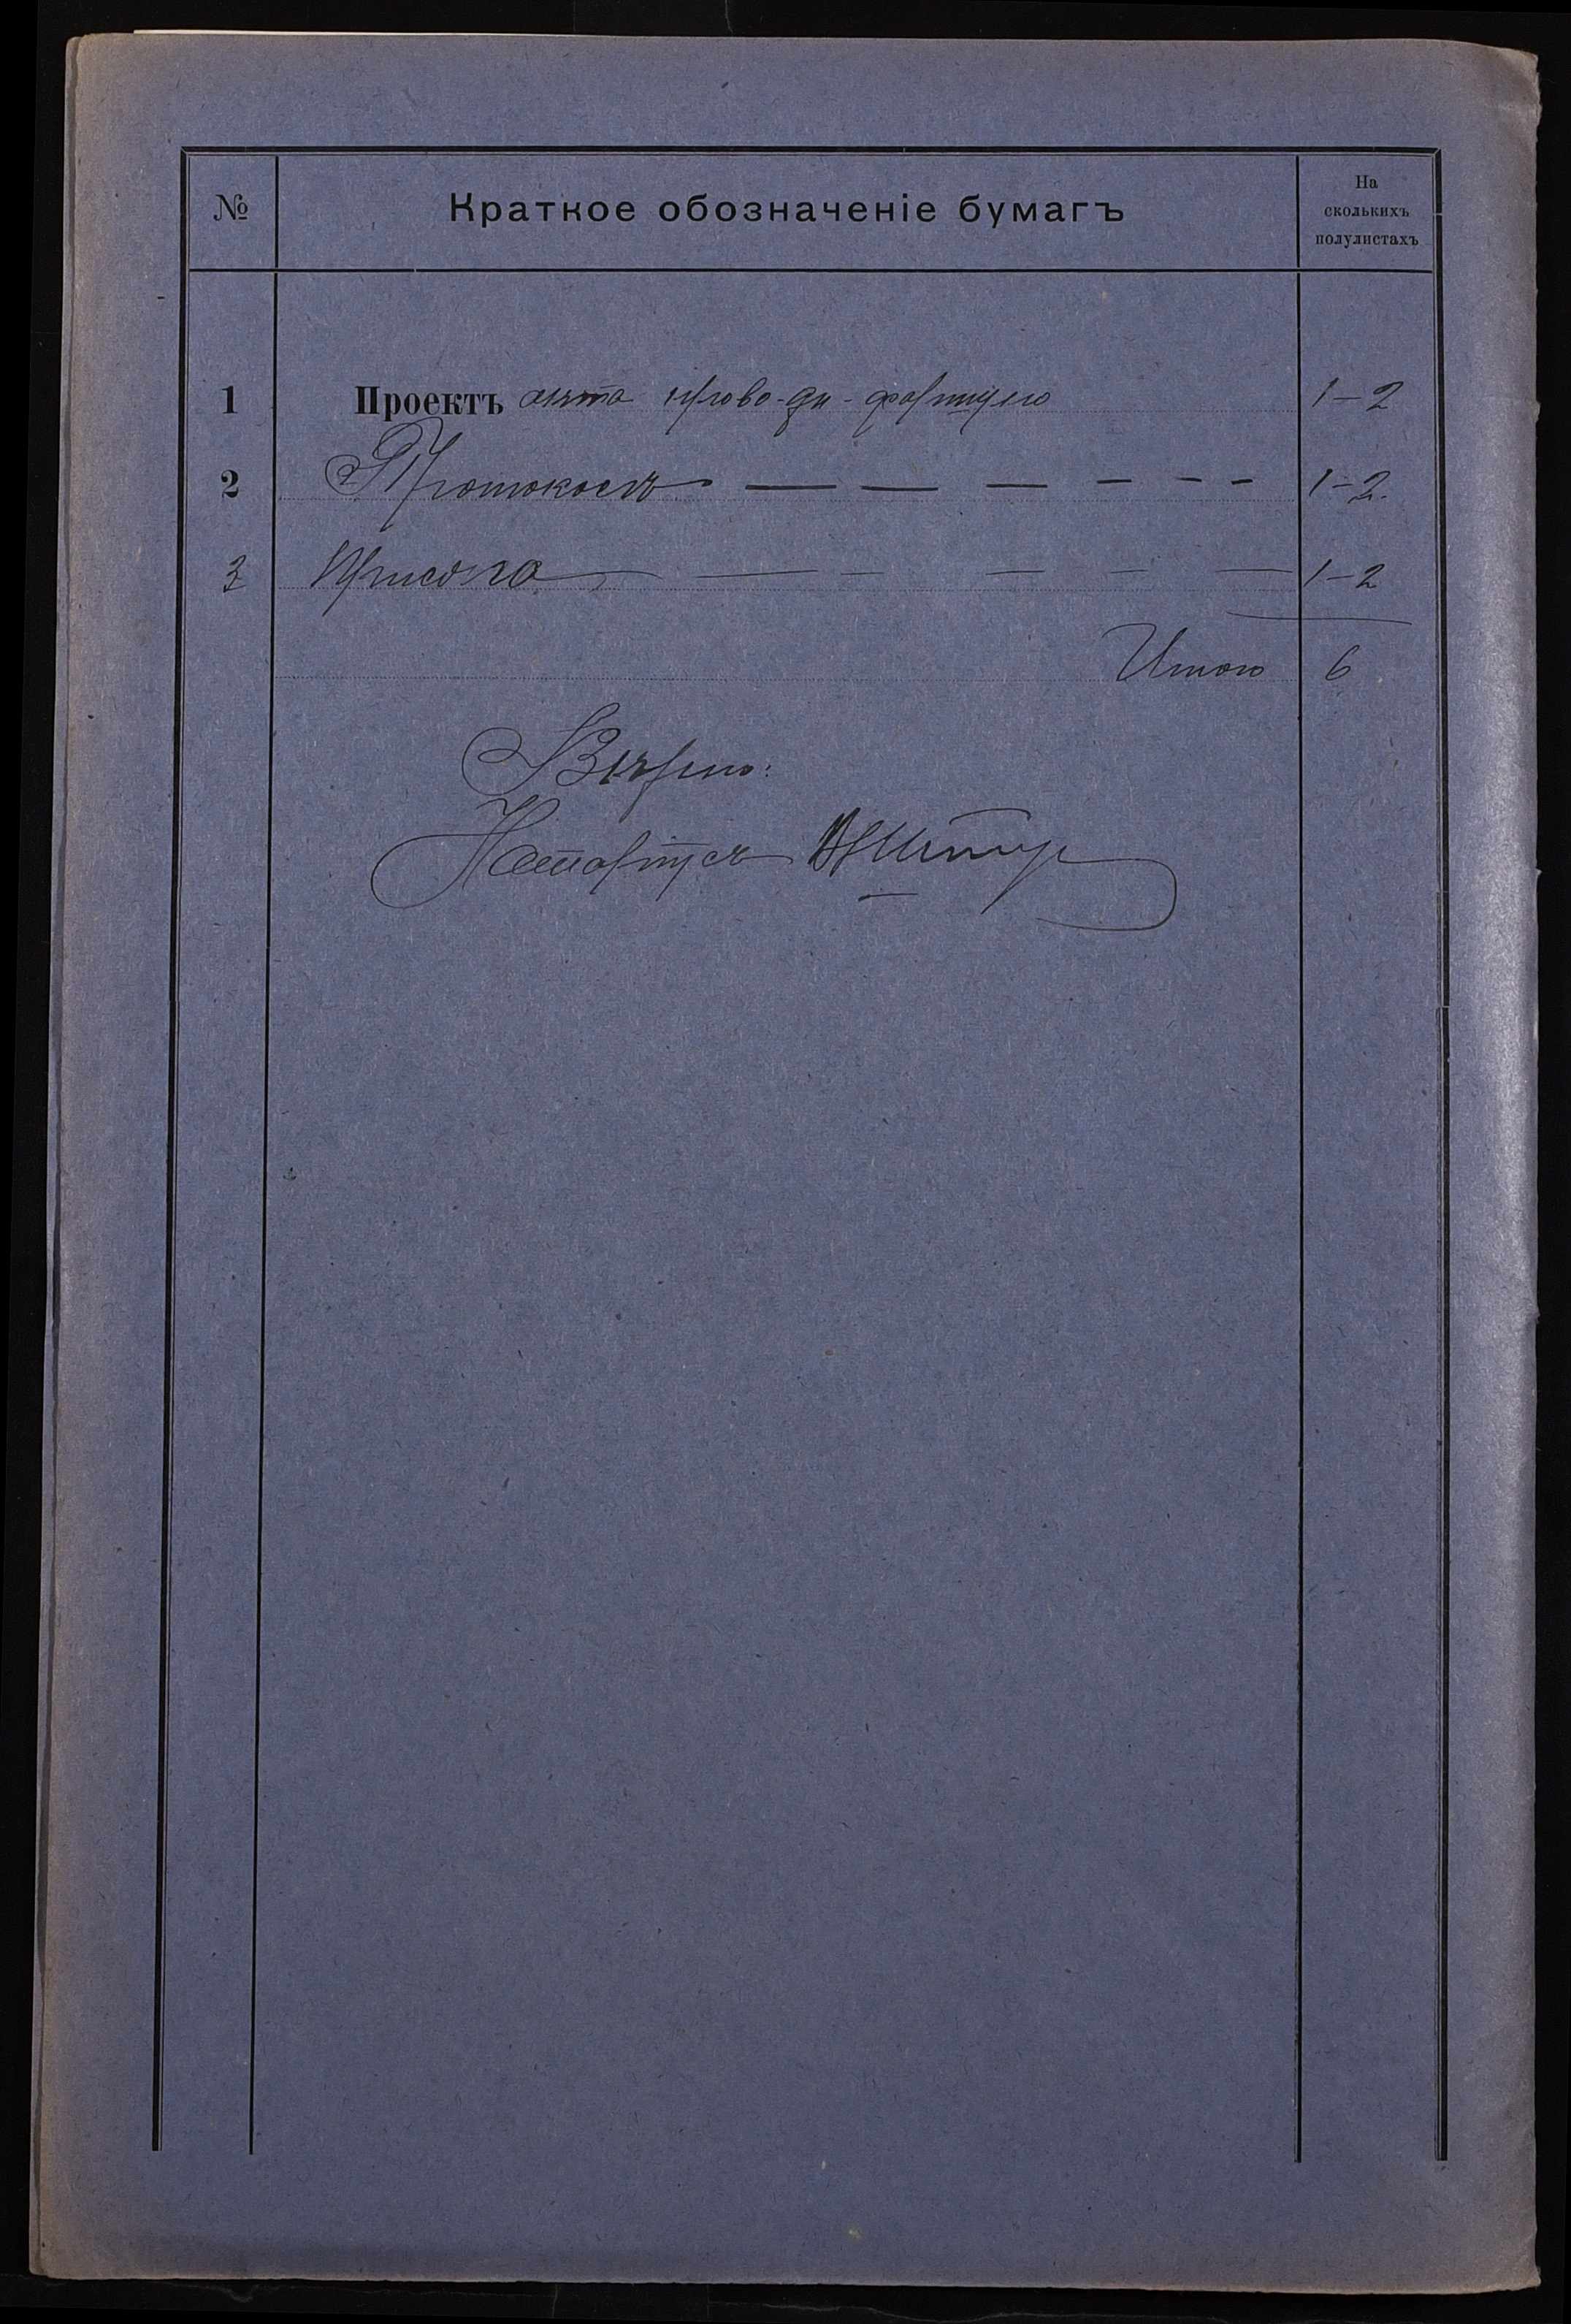 № Краткое обозначеніе бумагъ На сколькихъ полулистахъ
1 Проектъ акта 1-2
2 Протоколъ 1-2.
3 Присяга 1-2
Итого 6
Вѣрно:
Нотаріусъ